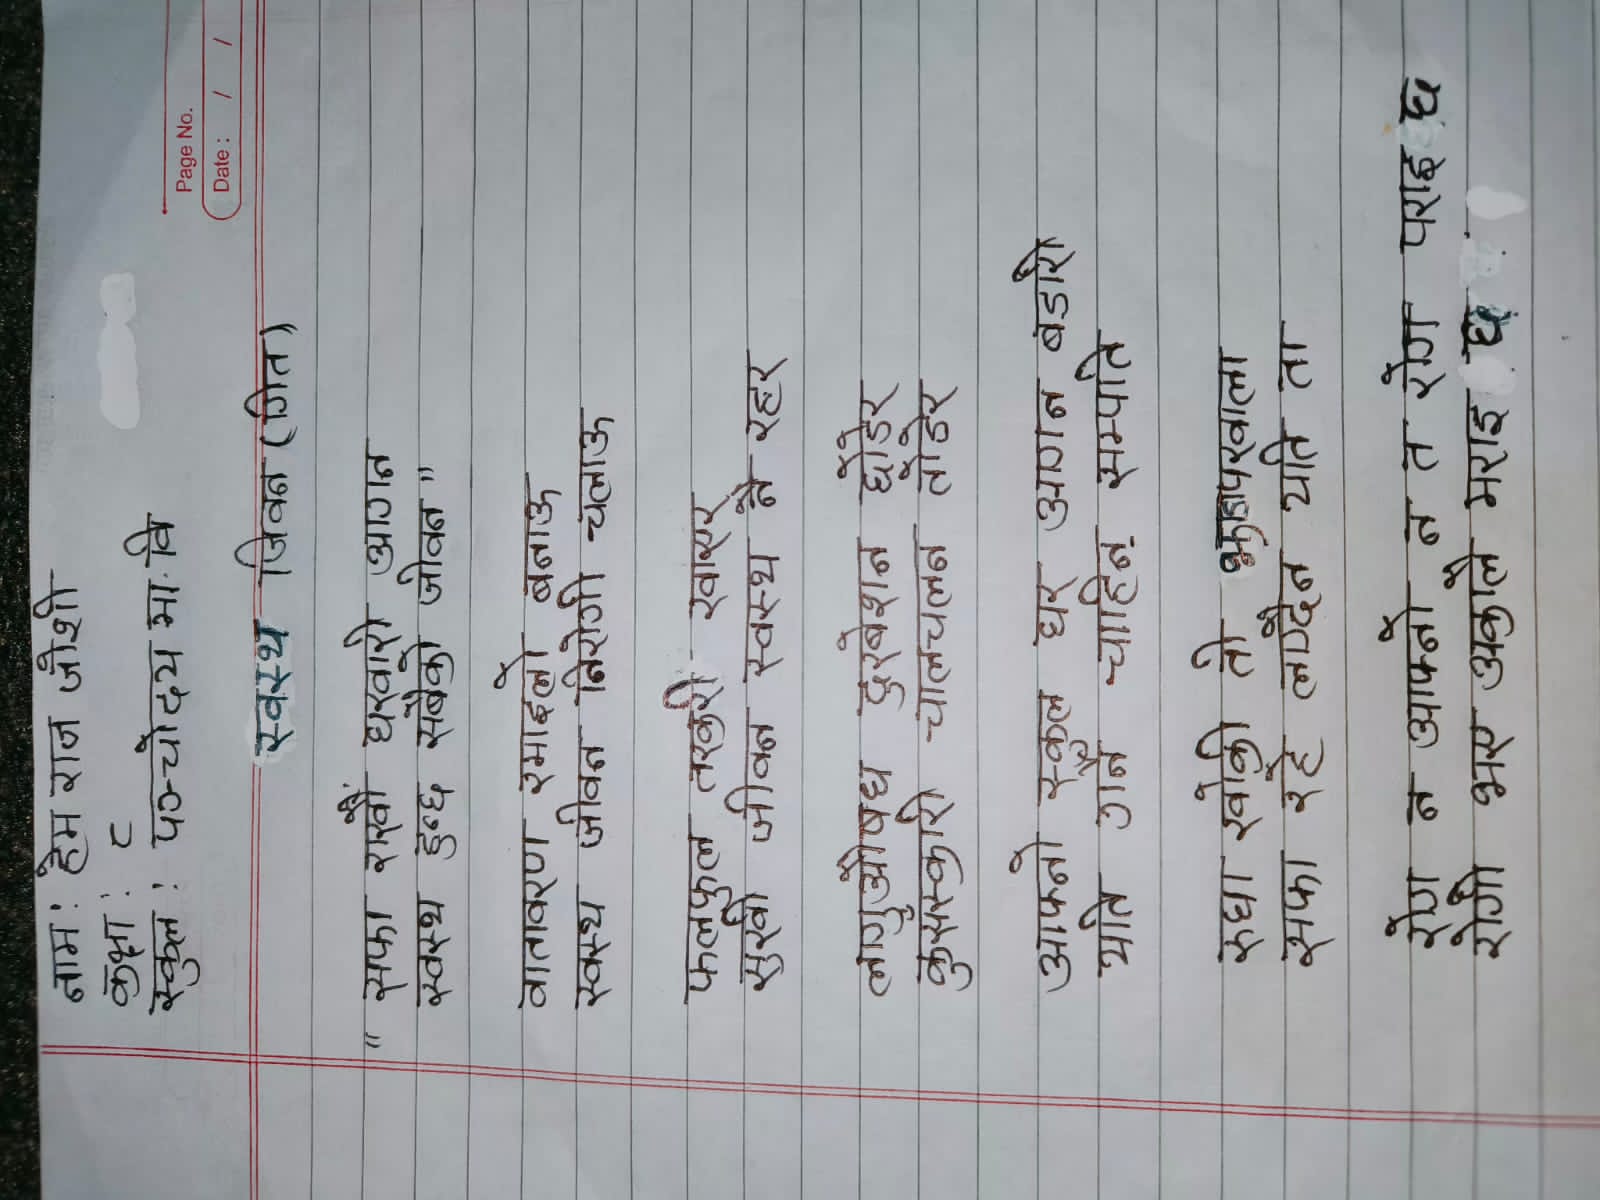 Page No.
Date : / /
नाम : हेम राज जोशी
कक्षा : ८
स्कुल : पञ्चोदय मा. वि
स्वस्थ जिवन (गित)
" सफा राखौं घरवारी आगन
स्वस्थ हुन्छ सबैको जीवन "
वातावरण रमाइलो बनाऊ
स्वस्थ जीवन निरोगी चलाऊ
फलफुल तरकारी खाएर
सुखी जीवन स्वस्थ नै रहर
लागुऔषध दुरबेशन छोडेर
कुसस्कारी चालचलन तोडेर
आफ्नो स्कुल घर आगन बडारी
यति गर्नु चाहिन् सम्पति
रुघा खोकी तो झाडापखाला
सफा रहे लाग्दैन यति ता
रोग न आफ्नो न त रोग पराइ छ
रोगी भए अकाले मराइ छ